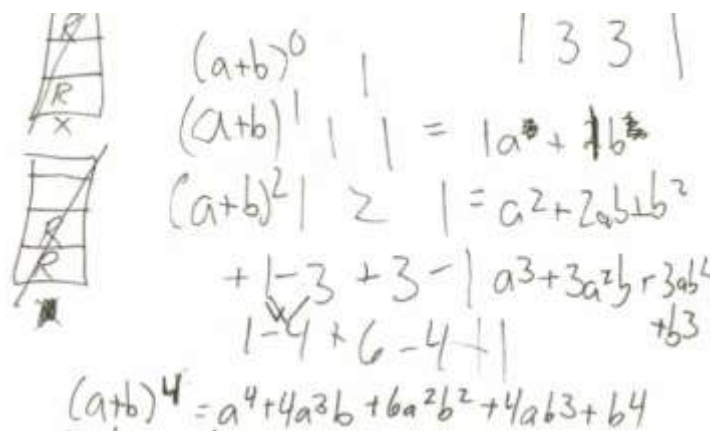 R
R
X
R
R
1 3 3 1
(a+b)⁰ 1
(a+b)¹ 1 1 = 1a + 1b
(a+b)² 1 2 1 = a² + 2ab + b²
+ 1 - 3 + 3 - 1 a³ + 3a²b + 3ab²
+b3
1 - 4 + 6 - 4 + 1
(a+b)⁴ = a⁴ + 4a³b + 6a²b² + 4ab3 + b4